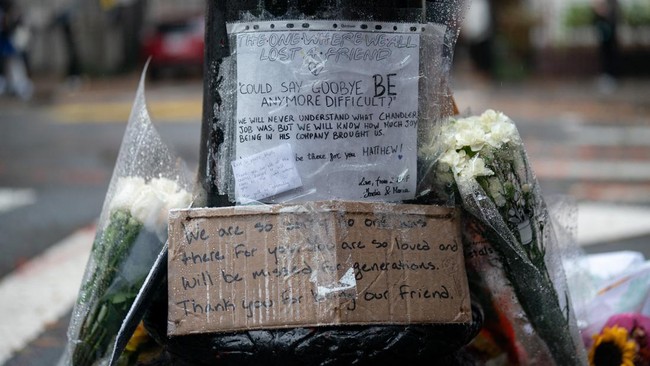 THE ONE WHERE WE ALL
LOST A FRIEND
"COULD SAY GOOBYE BE
ANYMORE DIFFICULT?"
WE WILL NEVER UNDERSTAND WHAT CHANDLER
JOB WAS, BUT WE WILL KNOW HOW MUCH JOY
BEING IN HIS COMPANY BROUGHT US.
be there for you MATTHEW!
Love,
We are so no one was
there For you. You are so loved and
will be missed for generations.
Thank you for being our friend.